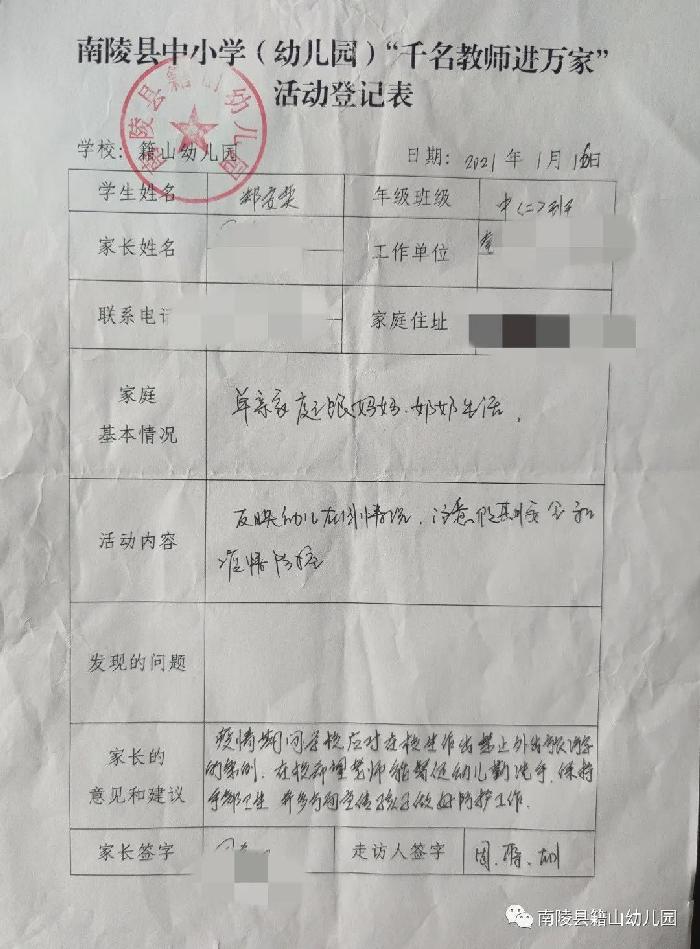 南陵县中小学(幼儿园)“千名教师进万家”
活动登记表
南陵县籍山幼儿园
学校: 籍山幼儿园 日期: 2021年1月1日
学生姓名 郑安 年级班级 中(二)班
家长姓名 工作单位
联系电 家庭住址
家庭
基本情况
单亲家庭跟妈妈、奶奶生活。
活动内容
反映幼儿在园情况,注意假期安全和
疫情防控
发现的问题
家长的
意见和建议
疫情期间学校应对在校生作出禁止外出
的条例,在校希望老师能督促幼儿勤洗手,保持
手部卫生 并多方向宣传孩子做好防护工作.
家长签字 走访人签字 周、蒋、
南陵县籍山幼儿园